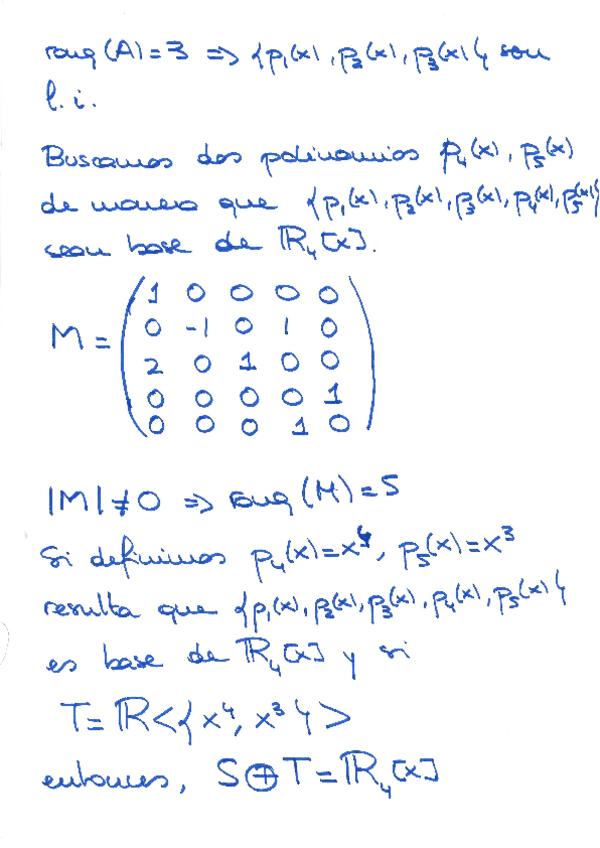 rang (A) = 3 => {p₁(x), p₂(x), p₃(x)} son
l.i.
Buscamos dos polinomios p₄(x), p₅(x)
de manera que {p₁(x), p₂(x), p₃(x), p₄(x), p₅(x)}
sean base de ℝ₄[x].
M = ( 1 0 0 0 0
0 -1 0 1 0
2 0 1 0 0
0 0 0 0 1
0 0 0 1 0 )
|M| ≠ 0 => rang (M) = 5
Si definimos p₄(x) = x⁴, p₅(x) = x³
resulta que {p₁(x), p₂(x), p₃(x), p₄(x), p₅(x)}
es base de ℝ₄[x] y si
T = ℝ<{x⁴, x³}>
entonces, S ⊕ T = ℝ₄[x]